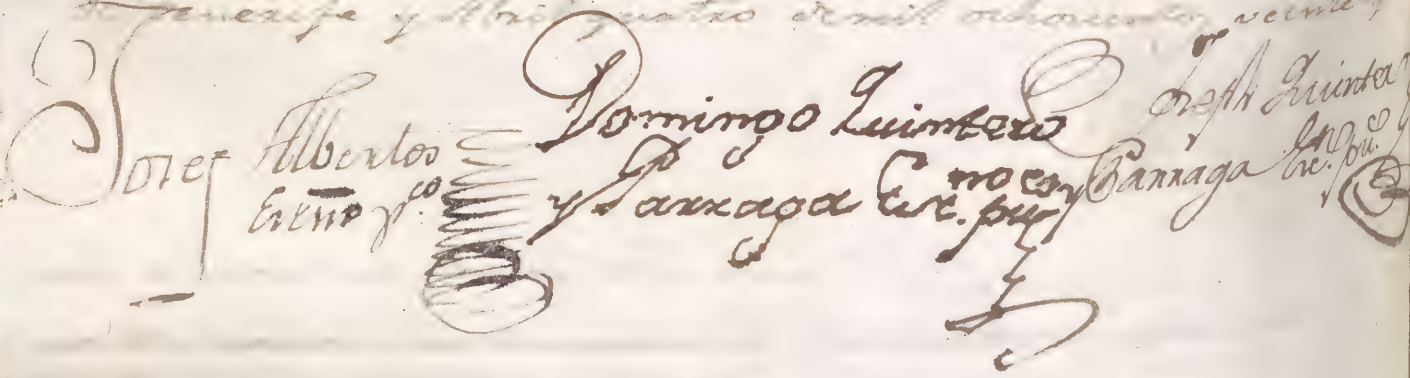 Tenerife y Abril quatro de mil ochocientos veinte y
Josef Albertos
Escno pco
Domingo Quintero
y Parraga Esc.no puco
Josefh Quintero
y Parraga Esc.no puco